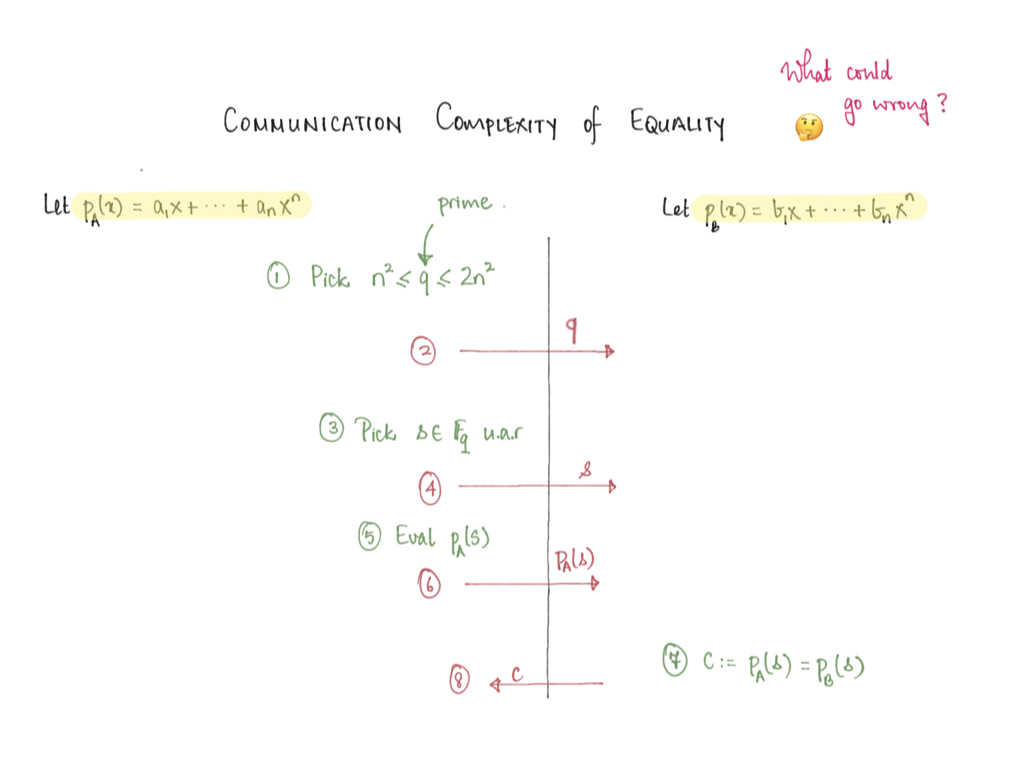 What could
go wrong?
COMMUNICATION COMPLEXITY of EQUALITY
Let p_A(x) = a₁x + ··· + aₙxⁿ
prime.
Let p_B(x) = b₁x + ··· + bₙxⁿ
① Pick n² ≤ q ≤ 2n²
② q
③ Pick s ∈ F_q u.a.r
④ s
⑤ Eval p_A(s)
⑥ p_A(s)
⑦ C := p_A(s) = p_B(s)
⑧ C